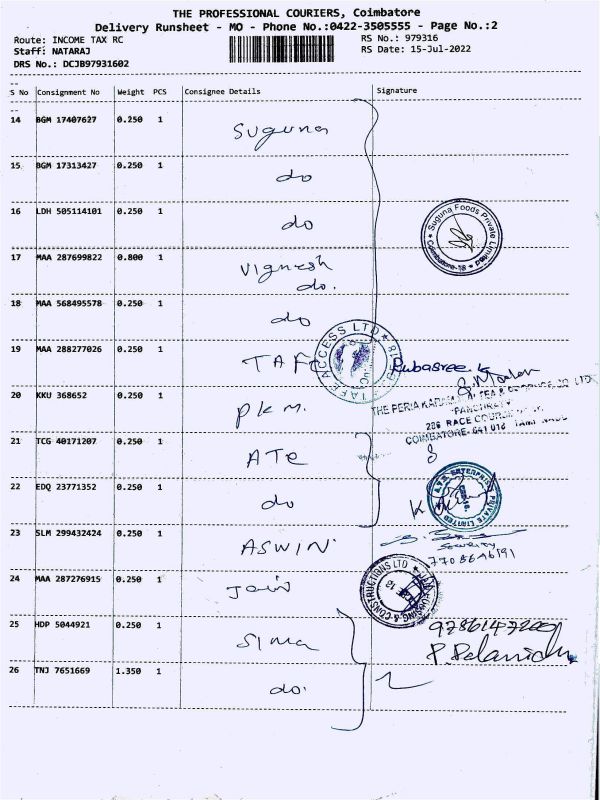 THE PROFESSIONAL COURIERS, Coimbatore
Delivery Runsheet - MO - Phone No.:0422-3505555 - Page No.:2
Route: INCOME TAX RC
RS No.: 979316
Staff: NATARAJ
RS Date: 15-Jul-2022
DRS No.: DCJB97931602
S No Consignment No Weight PCS Consignee Details Signature
14 BGM 17407627 0.250 1 Suguna
15 BGM 17313427 0.250 1 do
16 LDH 505114101 0.250 1 do
Suguna Foods Private Limited
Coimbatore-18
17 MAA 287699822 0.800 1 Vignesh
do.
18 MAA 568495578 0.250 1 do
19 MAA 288277026 0.250 1 TAFE
TAFE ACCESS LTD
Rubasree.k
20 KKU 368652 0.250 1 PKM.
THE PERIA KARAMALAI TEA & PRODUCE CO LTD
"PANCHRATN"
286 RACE COURSE
COIMBATORE-641 018 TAMIL NADU
21 TCG 40171207 0.250 1 ATE
22 EDQ 23771352 0.250 1 do
A.T.E. ENTERPRISES PRIVATE LIMITED
23 SLM 299432424 0.250 1 ASWIN
Security
24 MAA 287276915 0.250 1 Jain
JAIN HOUSING & CONSTRUCTIONS LTD
25 HDP 5044921 0.250 1 Sima
26 TNJ 7651669 1.350 1 do.